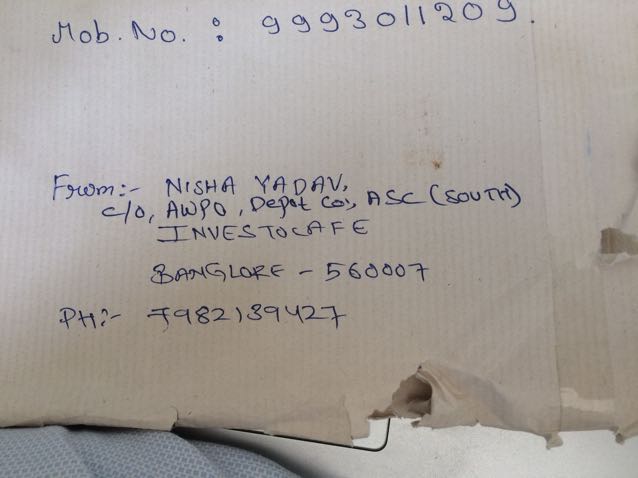 Mob. No. : 9993011209.
From:- NISHA YADAV,
c/o, AWPO, Depot Co:, ASC (SOUTH)
INVESTOCAFE
BANGLORE - 560007
PH:- 7982139427